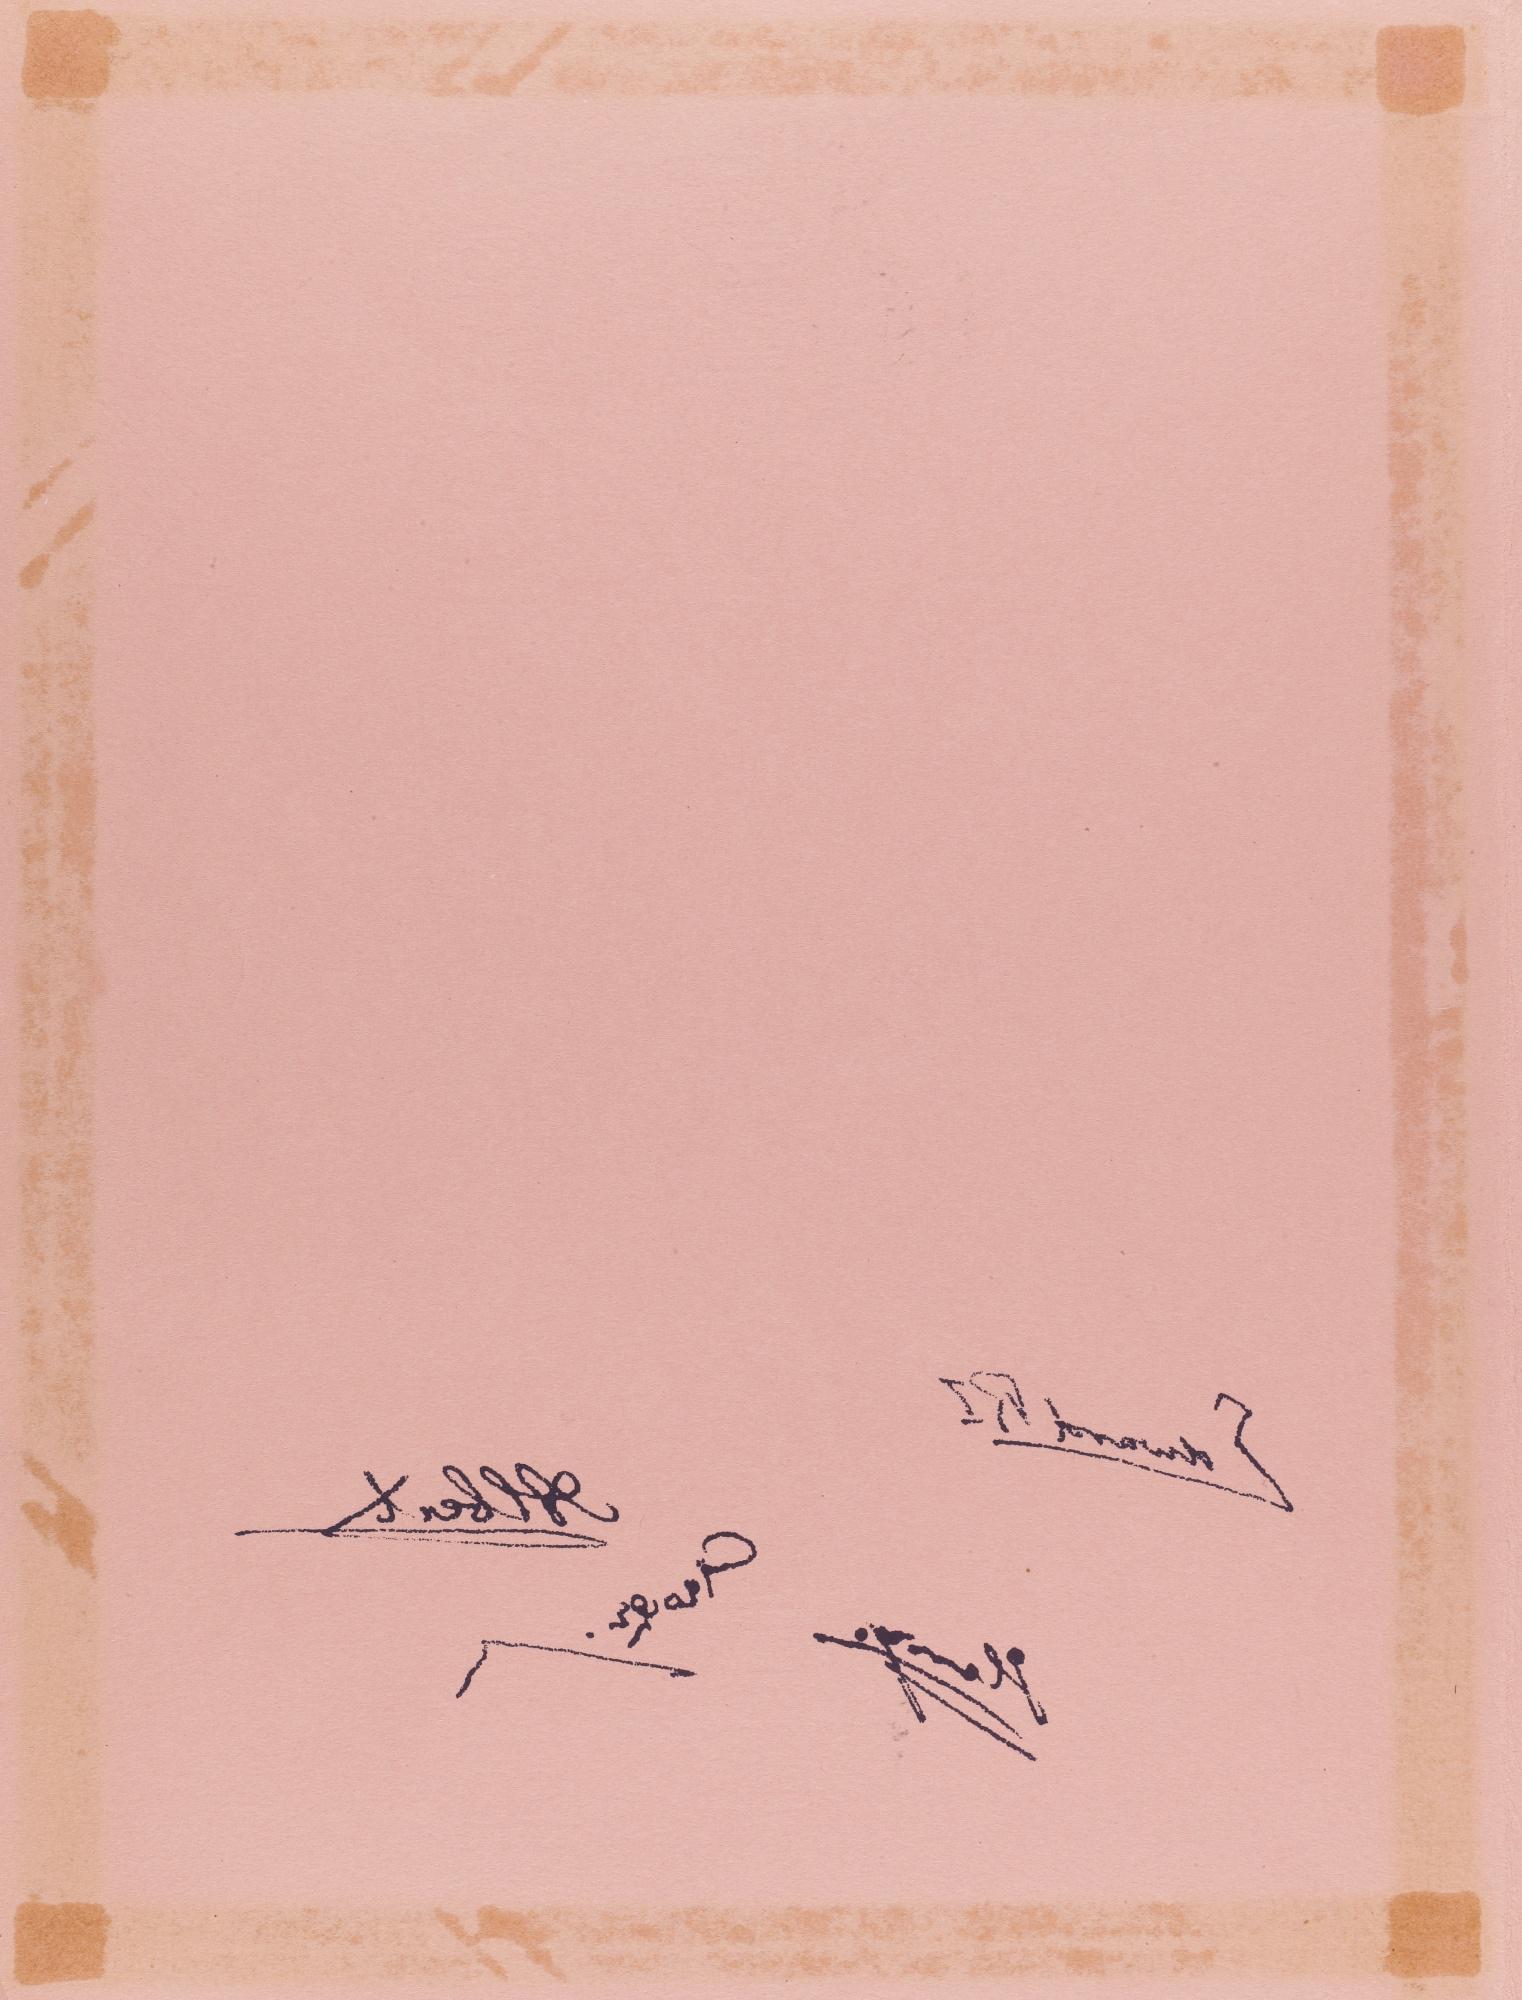 Edward RI
Albert
George.
Henry.